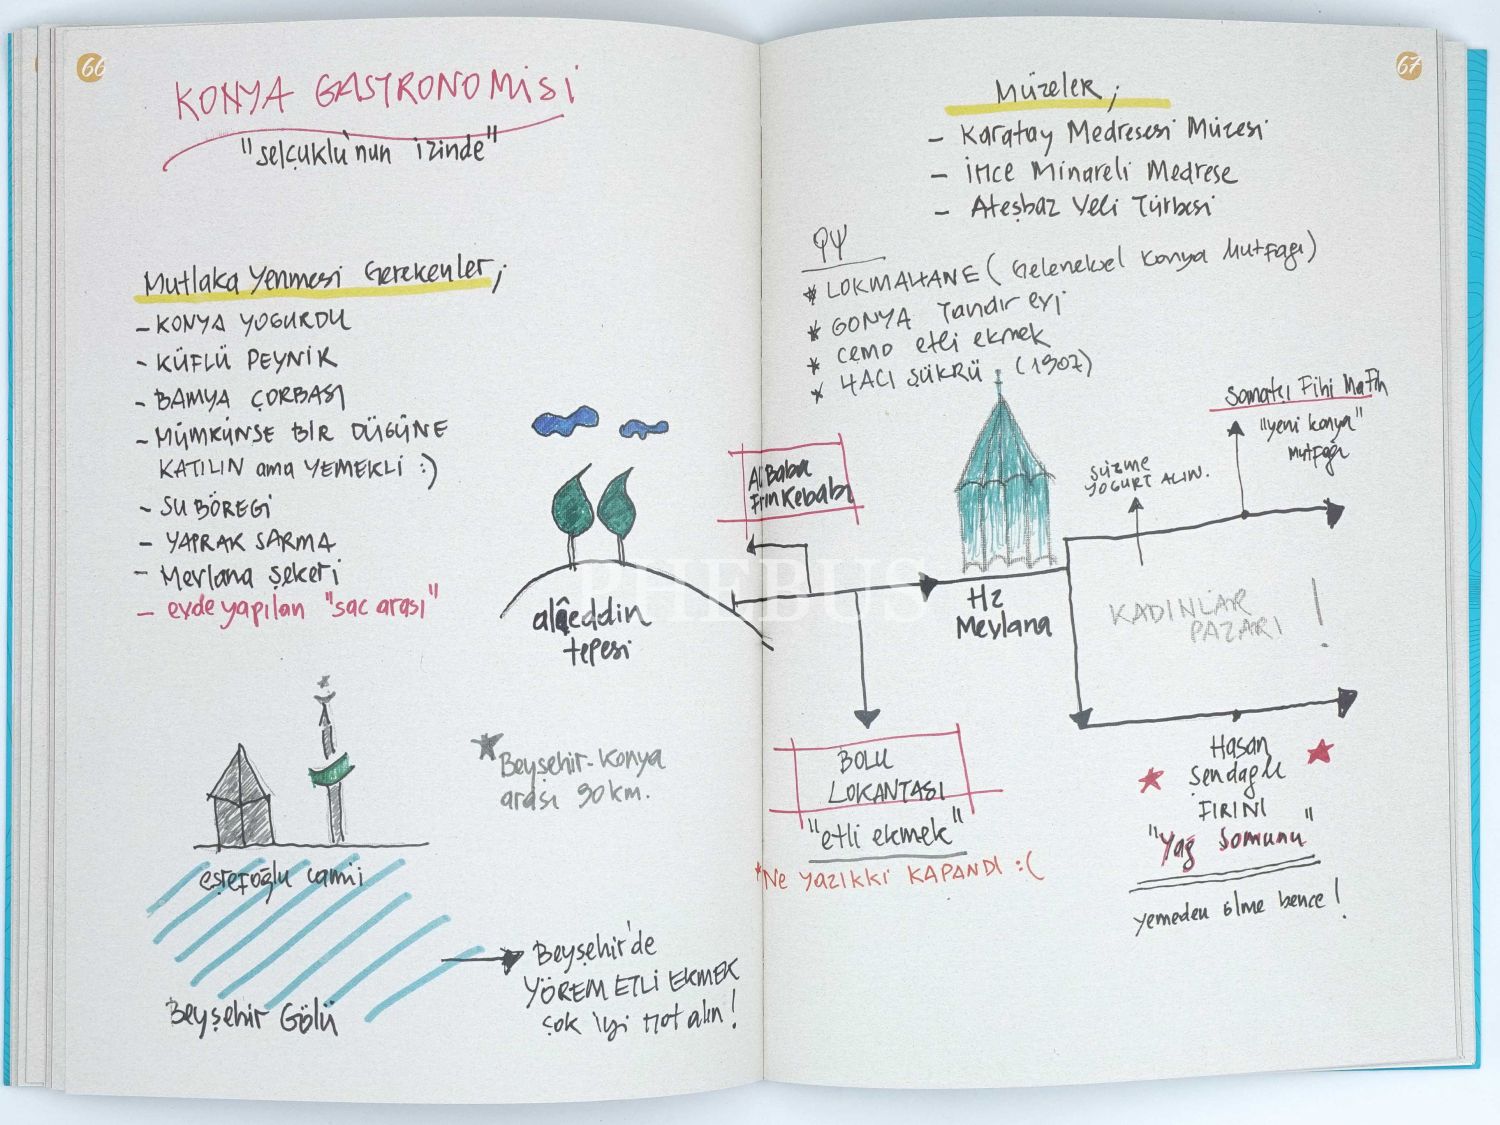 66
KONYA GASTRONOMİSİ
"selçuklu'nun izinde"
Mutlaka Yenmesi Gerekenler;
- KONYA YOGURDU
- KÜFLÜ PEYNİR
- BAMYA ÇORBASI
- MÜMKÜNSE BİR DÜGÜNE
KATILIN ama YEMEKLİ :)
- SU BÖREGİ
- YAPRAK SARMA
- Mevlana şekeri
- evde yapılan "sac arası"
alâeddin
tepesi
★ Beyşehir-Konya
arası 90 km.
eşrefoğlu camii
Beyşehir Gölü
Beyşehir'de
YÖREM ETLİ EKMEK
çok iyi not alın!
67
MÜZELER;
- Karatay Medresesi Müzesi
- İnce Minareli Medrese
- Ateşbaz Veli Türbesi
* LOKMAHANE (Geleneksel Konya Mutfağı)
* GONYA Tandır evi
* CEMO etli ekmek
* HACI ŞÜKRÜ (1907)
Ali Baba
Fırın Kebabı
Hz
Mevlana
SÜZME
YOGURT ALIN.
Somatçı Fihi Ma Fih
"yeni konya"
mutfağı
KADINLAR
PAZARI !
BOLU
LOKANTASI
"etli ekmek"
*Ne yazıkki KAPANDI :(
Hasan
Şendağlı
FIRINI
"Yağ Somunu"
yemeden ölme bence!
PHEBUS